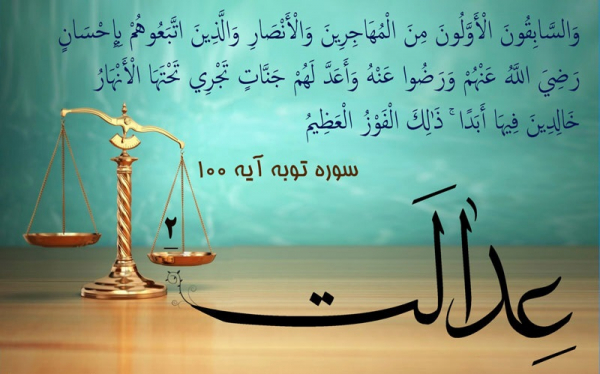 وَالسَّابِقُونَ الْأَوَّلُونَ مِنَ الْمُهَاجِرِينَ وَالْأَنْصَارِ وَالَّذِينَ اتَّبَعُوهُمْ بِإِحْسَانٍ
رَضِيَ اللَّهُ عَنْهُمْ وَرَضُوا عَنْهُ وَأَعَدَّ لَهُمْ جَنَّاتٍ تَجْرِي تَحْتَهَا الْأَنْهَارُ
خَالِدِينَ فِيهَا أَبَدًا ۚ ذَٰلِكَ الْفَوْزُ الْعَظِيمُ
سوره توبه آیه ۱۰۰
عِدالَت
۲